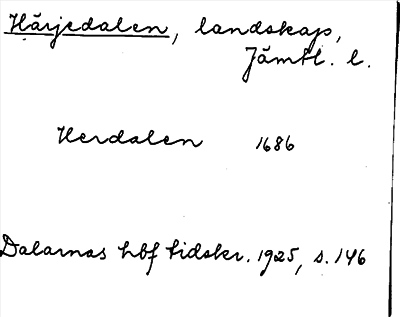 Härjedalen, landskap,
Jämtl. l.
Herdalen 1686
Dalarnas hbf tidskr. 1925, s. 146